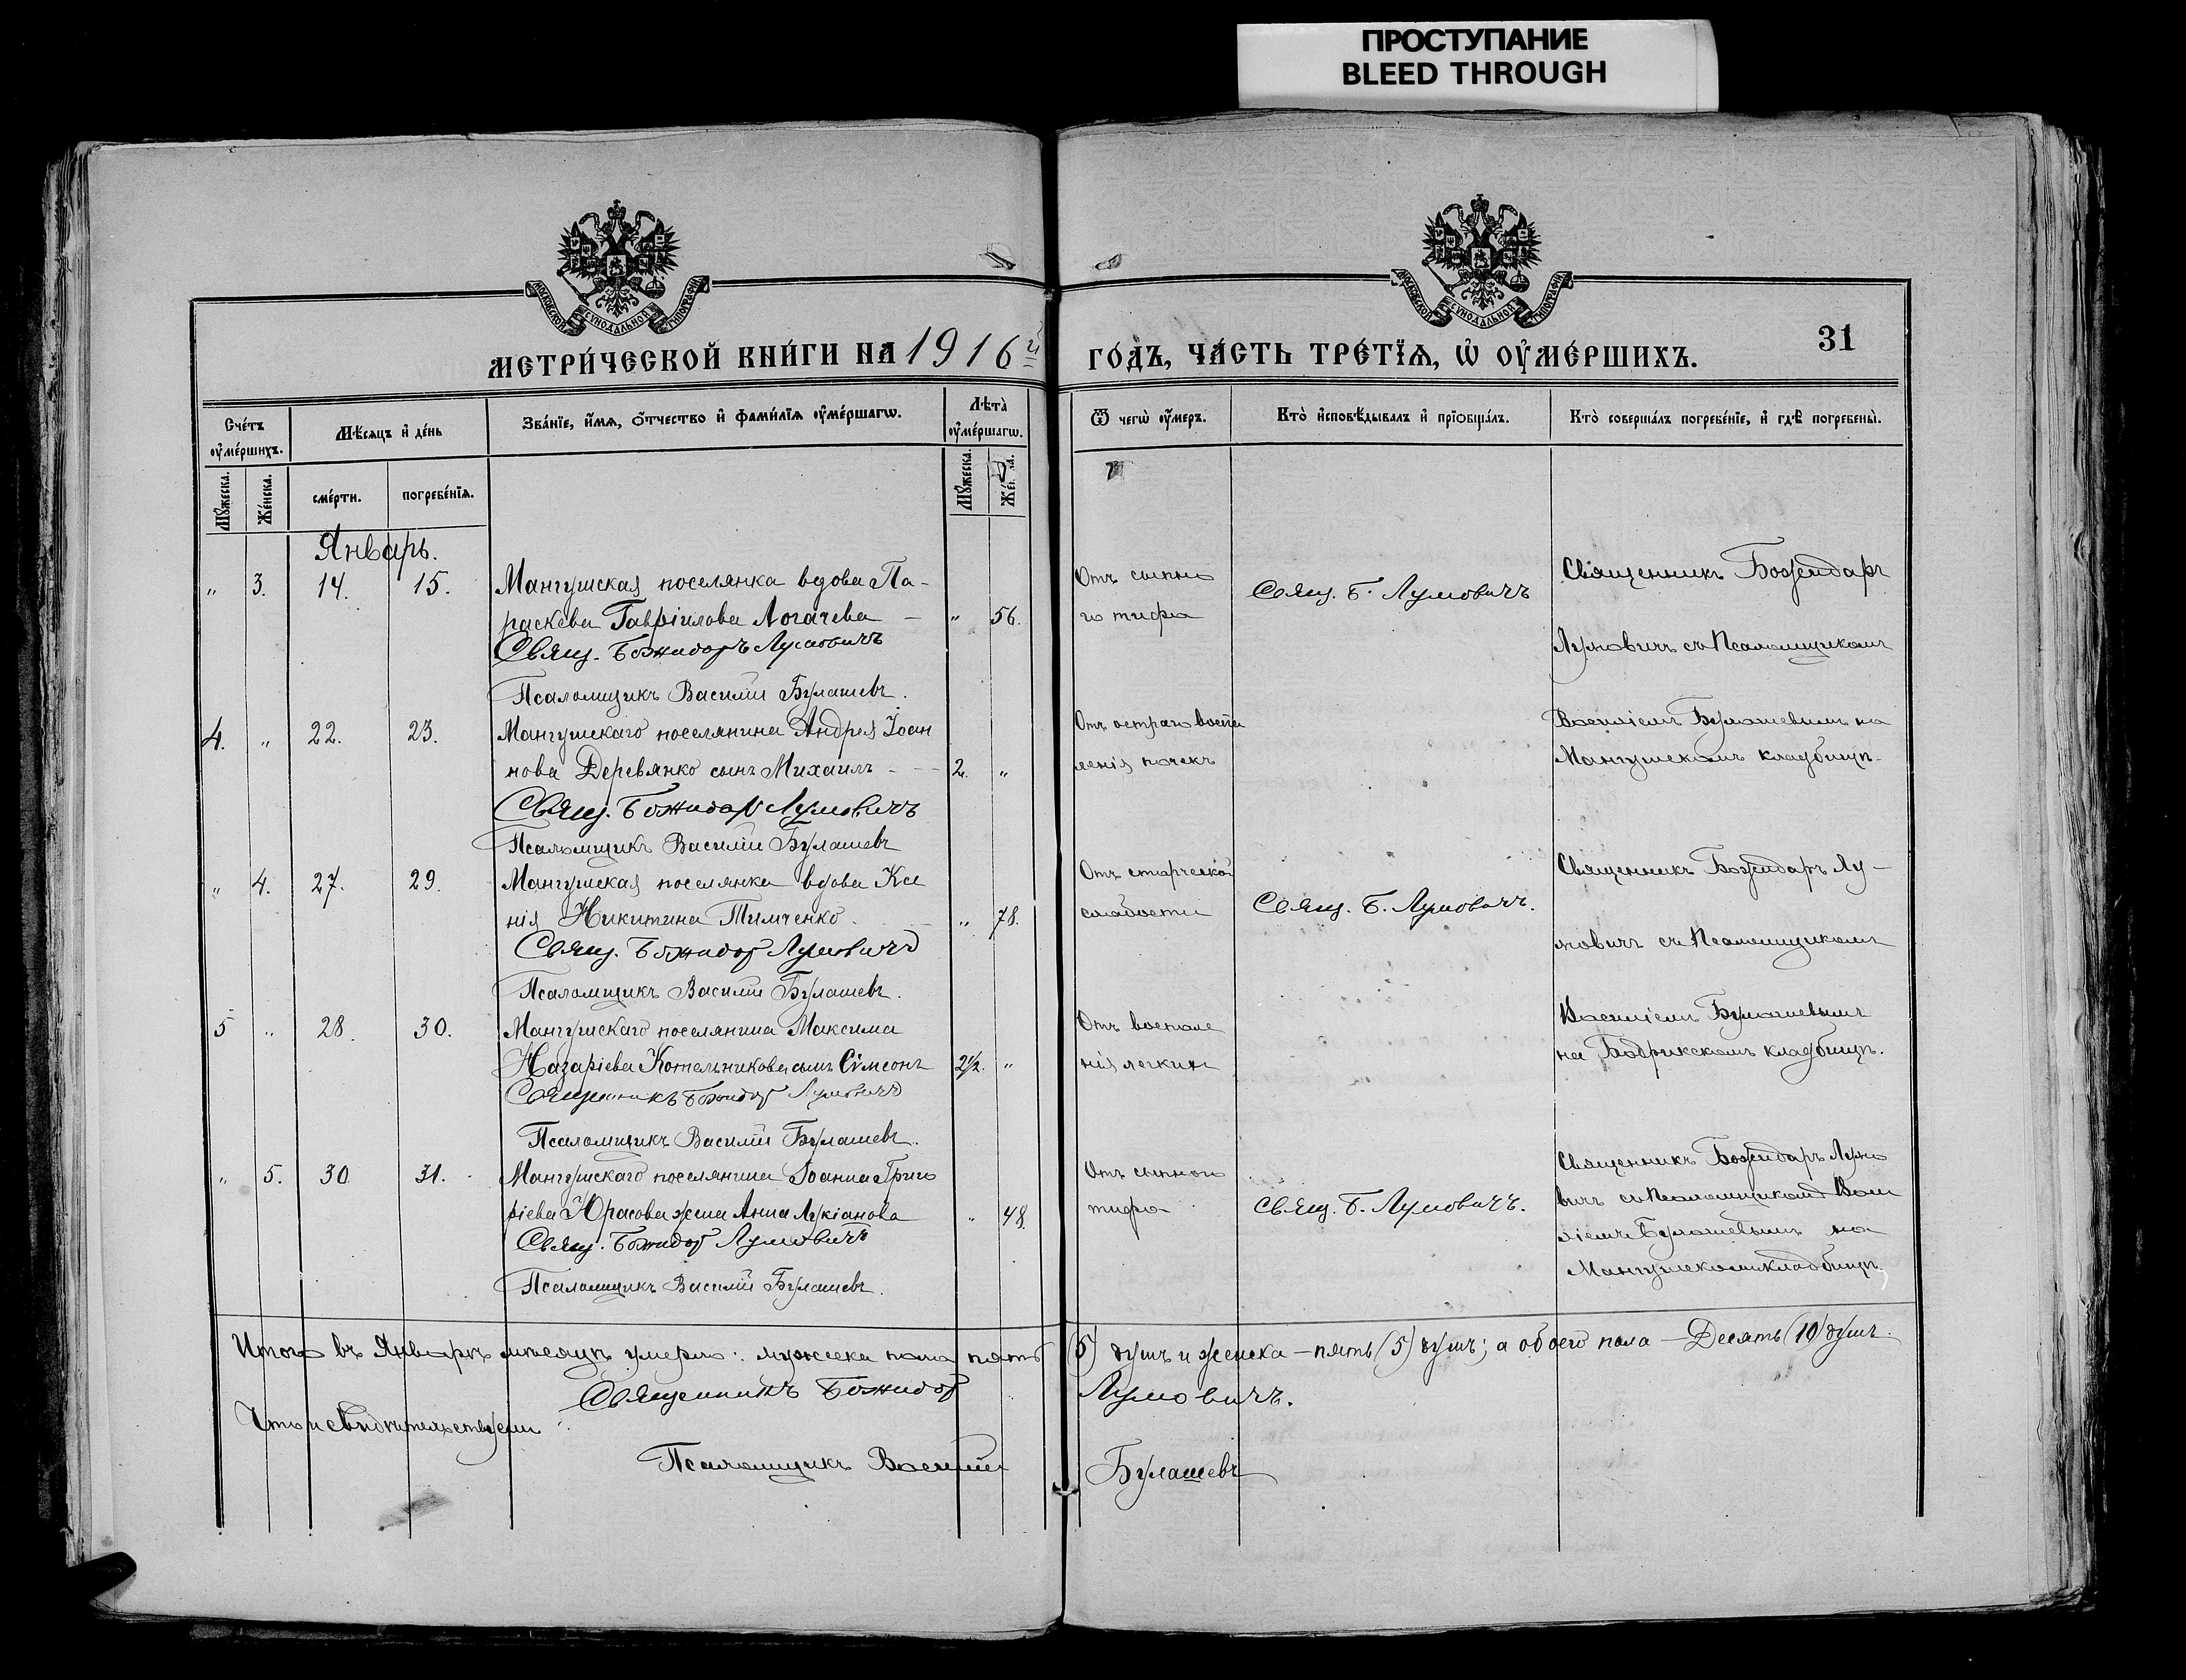 ПРОСТУПАНИЕ
BLEED THROUGH
МОСКОВСКОЙ СѴНОДАЛЬНОЙ ТИПОГРАФІИ
МОСКОВСКОЙ СѴНОДАЛЬНОЙ ТИПОГРАФІИ
МЕТРИ́ЧЕСКОЙ КНИ́ГИ НА 1916й ГО́ДЪ, ЧА́СТЬ ТРЕ́ТЇѦ, Ѡ҆ ОУ҆МЕ́РШИХЪ.
31
Сче́тъ оу҆ме́ршихъ.
Мѣ́сѧцъ и҆ де́нь
Зва́нїе, и҆́мѧ, ѻ҆́тчество и҆ фами́лїѧ оу҆ме́ршагѡ.
Лѣта̀ оу҆ме́ршагѡ.
Ѿ чегѡ̀ оу҆́меръ.
Кто̀ и҆сповѣ́дывалъ и҆ прїѻбща́лъ.
Кто̀ соверша́лъ погребе́нїе, и҆ гдѣ̀ погребены̀.
Мꙋ́жеска.
Же́нска.
сме́рти.
погребе́нїѧ.
Мꙋ́жеска.
Январь.
" 3. 14. 15. Мангушская поселянка вдова Па-
раскева Гавріилова Логачева — " 56.
Свящ. Божидаръ Лумовичъ
Псаломщикъ Василій Булашевъ.
Отъ сыпно
го тифа
Свящ. Б. Лумовичъ
Священникъ Божидаръ
Лумовичъ съ Псаломщикомъ
4. " 22. 23. Мангушскаго поселянина Андрея Іоан
нова Деревянко сынъ Михаилъ - - 2. "
Свящ. Божидар Лумовичъ
Псаломщикъ Василій Булашевъ
Отъ остраго воспа
ленія почекъ
Василіемъ Булашевымъ на
Мангушскомъ кладбищѣ.
" 4. 27. 29. Мангушская поселянка вдова Ксе
нія Никитина Тимченко. " 78.
Свящ. Божидар Лумовичъ
Псаломщикъ Василій Булашевъ.
Отъ старческой
слабости
Свящ. Б. Лумовичъ.
Священникъ Божидаръ Лу-
мовичъ съ Псаломщикомъ
5 " 28. 30. Мангушскаго поселянина Максима
Назаріева Котельникова сынъ Сѵмеонъ 2½. "
Священникъ Божидар Лумовичъ
Псаломщикъ Василій Булашевъ.
Отъ воспале
нія легкихъ
Василіемъ Булашевымъ
на кладбищѣ.
" 5. 30 31. Мангушскаго поселянина Іоанна Григо
ріева Юрасова жена Анна Лукіанова " 48.
Свящ. Божидар Лумовичъ
Псаломщикъ Василій Булашевъ.
Отъ сыпного
тифа
Свящ. Б. Лумовичъ.
Священникъ Божидаръ Лумо
вичъ съ Псаломщикомъ Васи
ліемъ Булашевымъ на
Мангушскомъ кладбищѣ.
Итого въ Январѣ мѣсяцѣ умерло: мужеска пола пять (5) душъ и женска — пять (5) душъ; а обоего пола — Десять (10) душъ.
Священникъ Божидар Лумовичъ.
Что и свидѣтельствуемъ
Псаломщикъ Василій Булашевъ